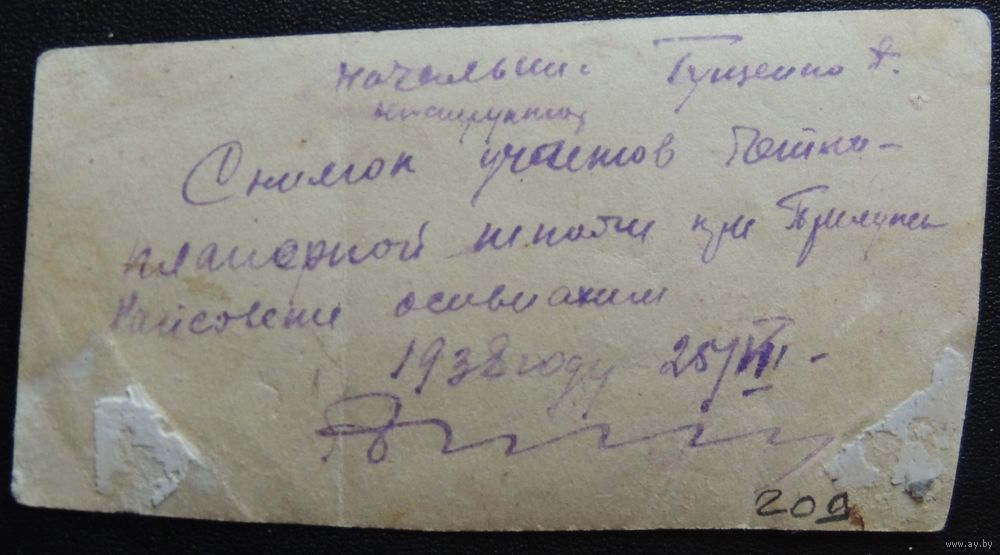 начальник Гущенко А.
инструктор
Снимок участков
планерной школы при Прилуки
Райсовете осивиахим
1938 году 25/VIII -
209
www.ay.by